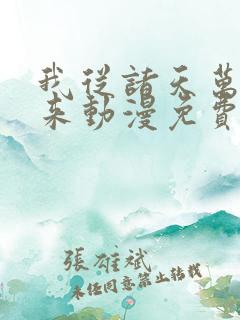 我從諸天萬
來動漫免費
張雄斌
未經同意禁止轉載